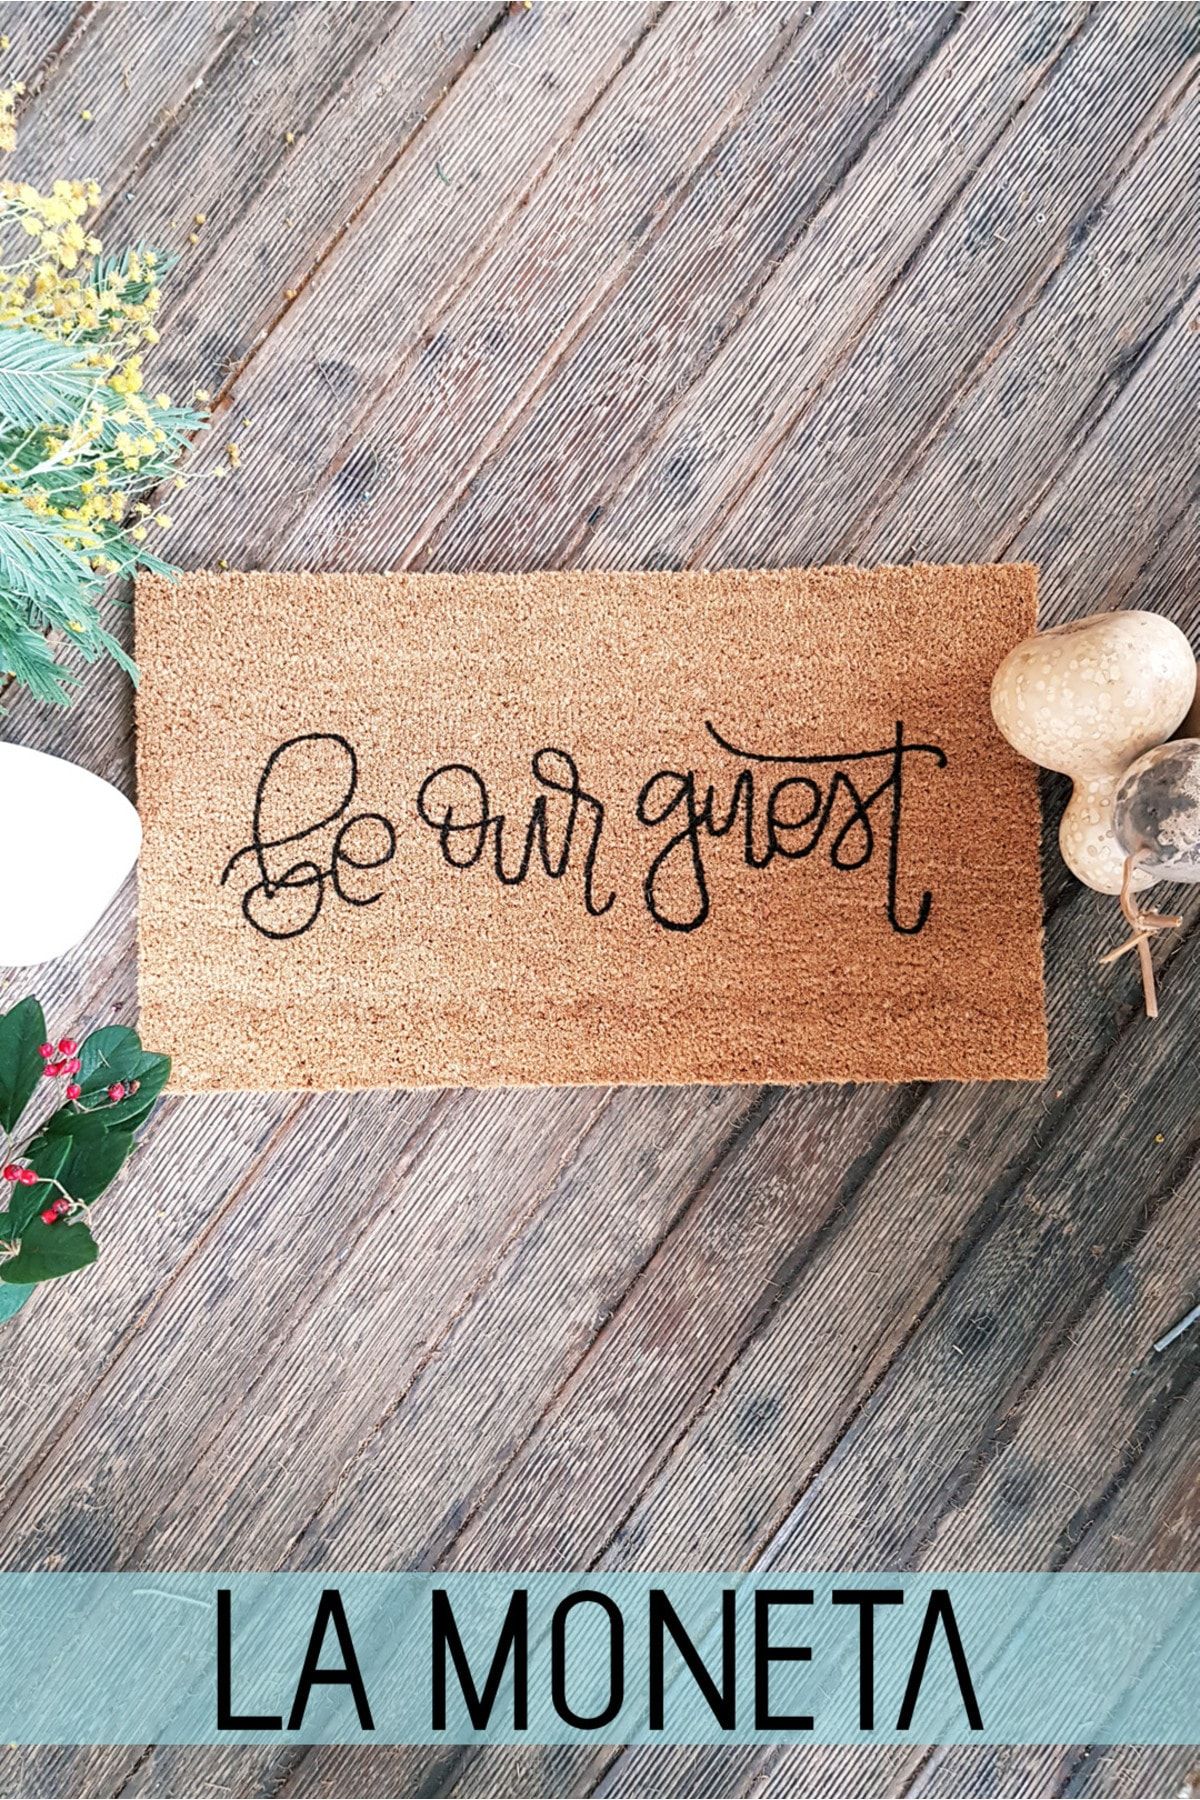 be our guest
LA MONETA